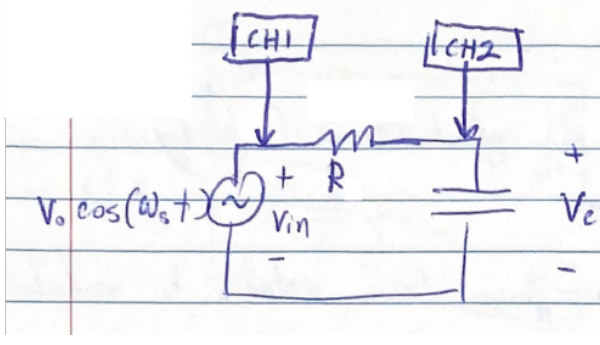 CH1
CH2
+
R
+
V₀ cos(ω₀t)
~
Vin
Vc
-
-